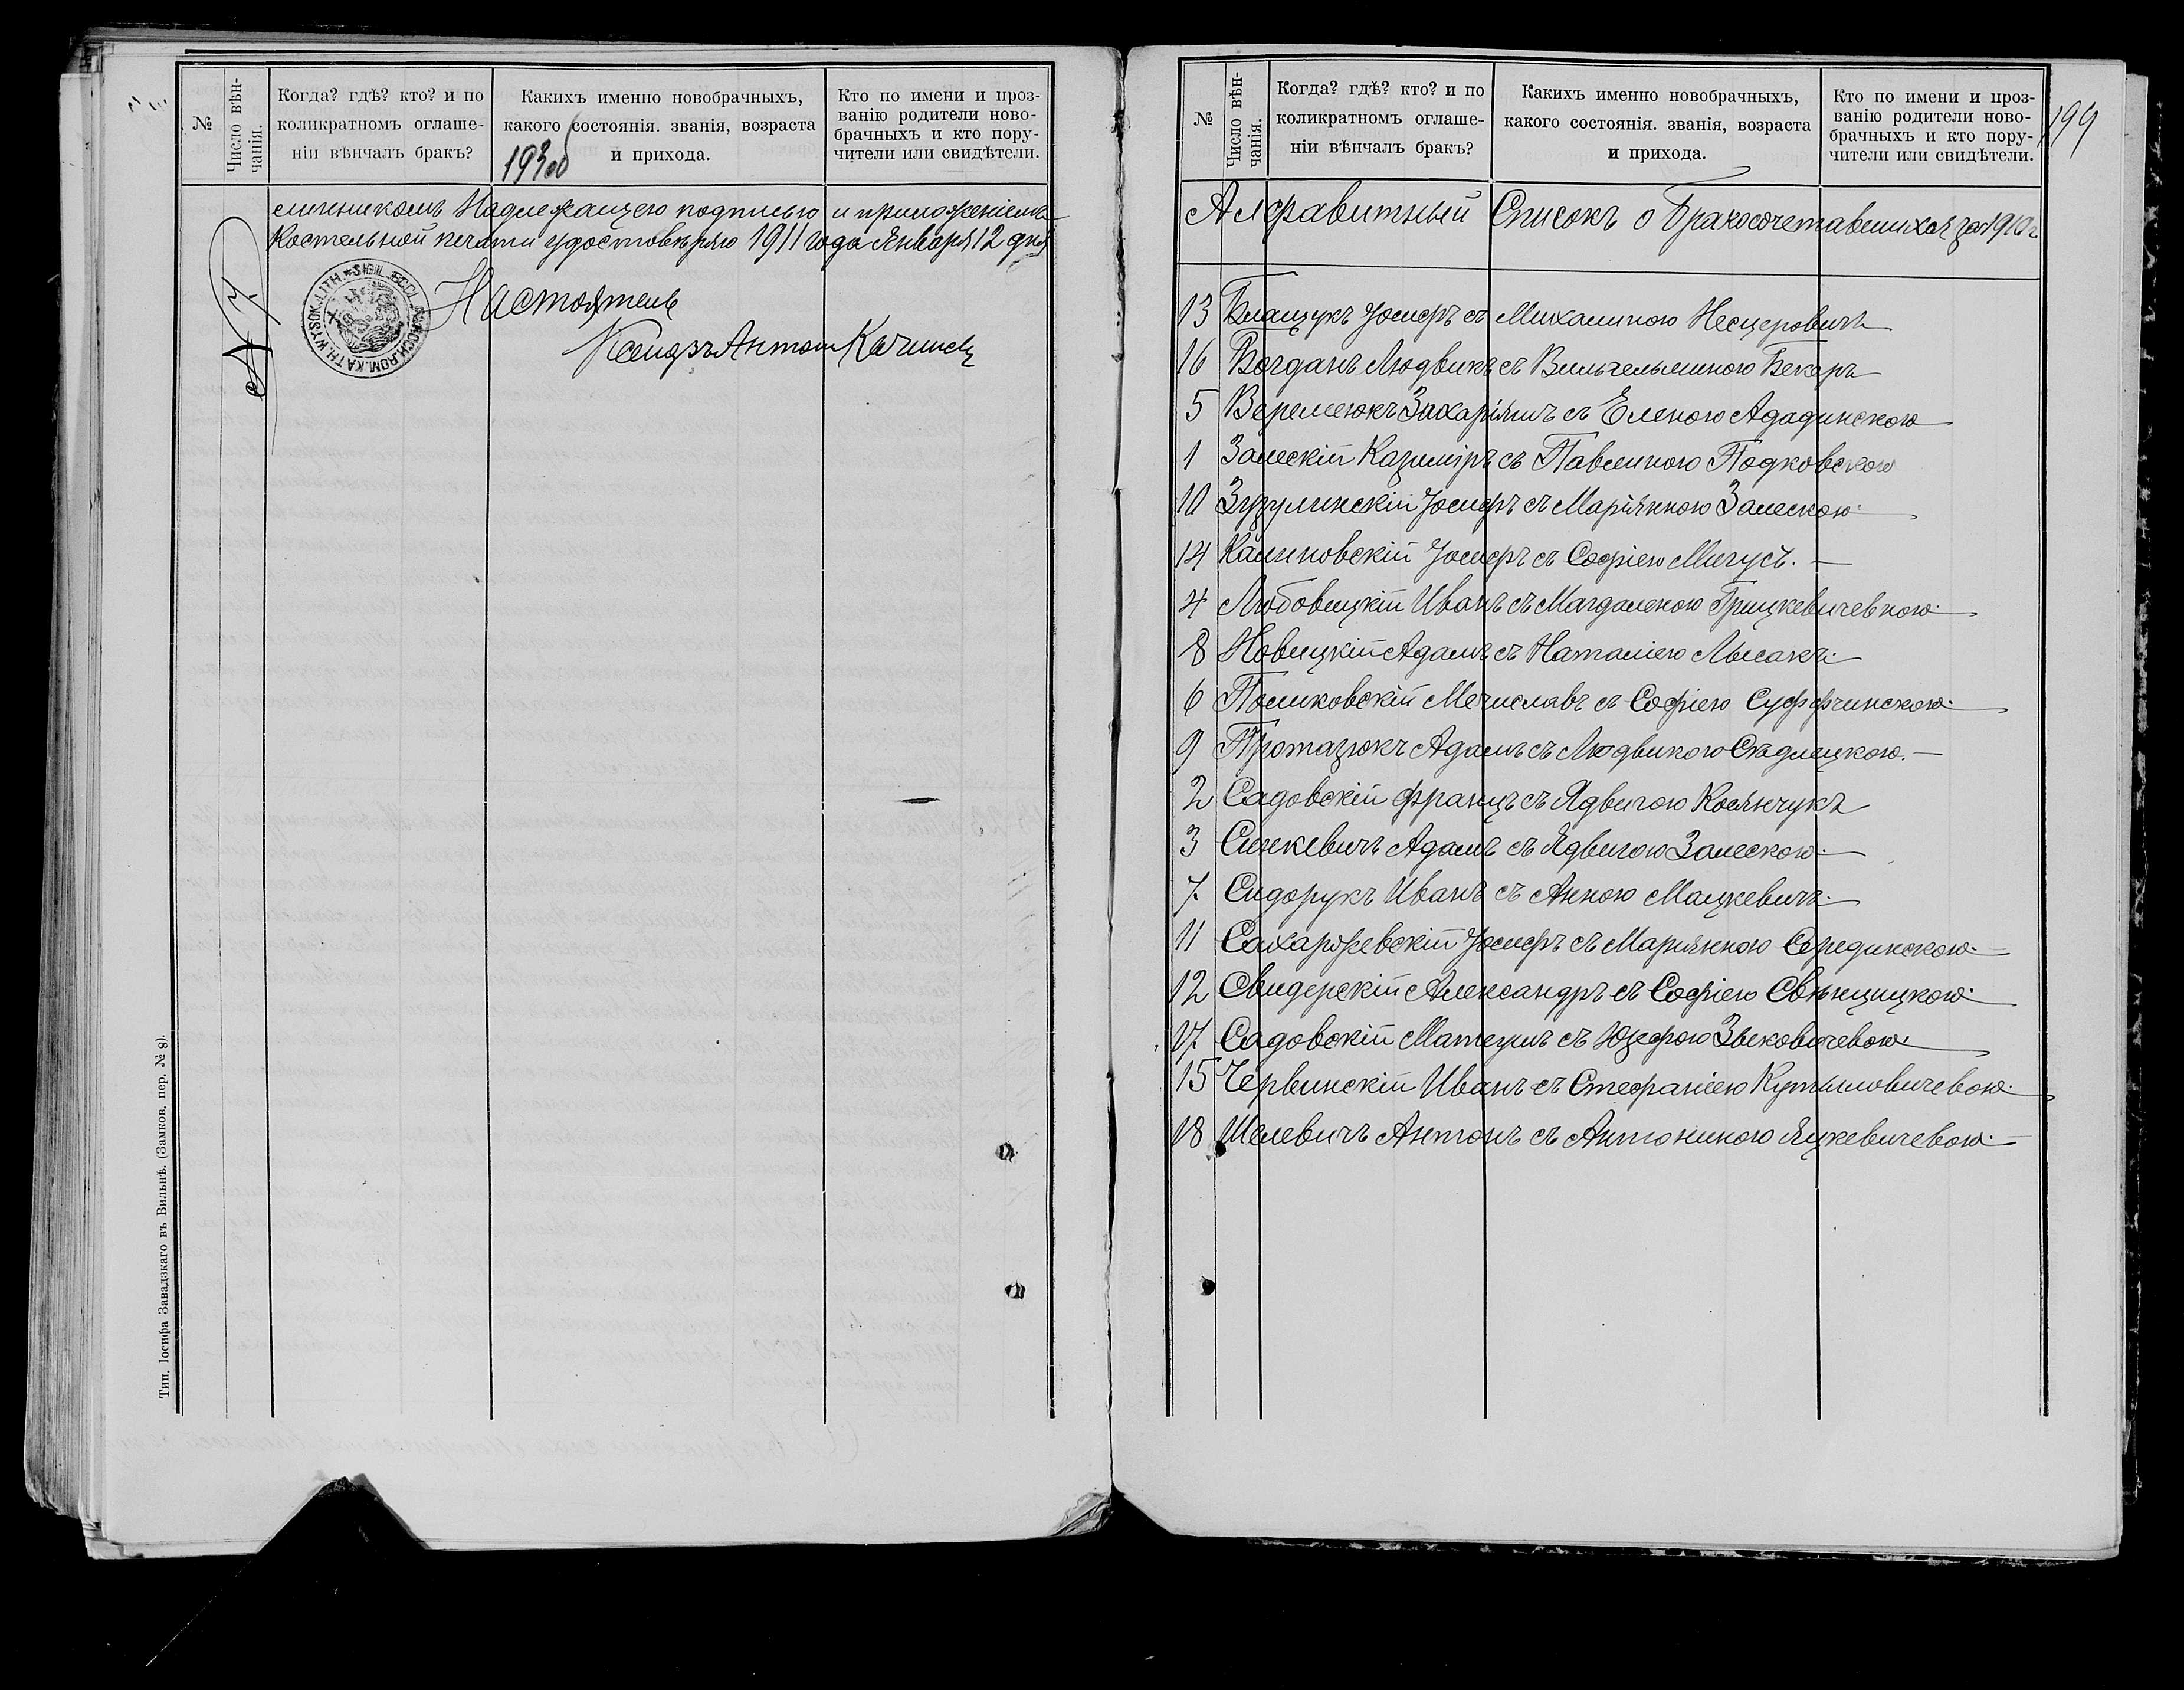 №
Число вѣн-
чанія.
Когда? гдѣ? кто? и по
коликратномъ оглаше-
ніи вѣнчалъ бракъ?
Какихъ именно новобрачныхъ,
какого состоянія. званія, возраста
и прихода.
Кто по имени и проз-
ванію родители ново-
брачныхъ и кто пору-
чители или свидѣтели.
193об
линникомъ Надлежащею подписью и приложеніемъ
Костельной печати удостовѣряю 1911 года Января 12 дня
Настоятель
Ксендзъ Антон
№ 7
SIGIL. ECCL. PAROCH. ROM. KATH. WYSOK. LITH.
Тип. Іосифа Завадзкаго въ Вильнѣ. (Замков. пер. № 8).
199
№
Число вѣн-
чанія.
Когда? гдѣ? кто? и по
коликратномъ оглаше-
ніи вѣнчалъ бракъ?
Какихъ именно новобрачныхъ,
какого состоянія. званія, возраста
и прихода.
Кто по имени и проз-
ванію родители ново-
брачныхъ и кто пору-
чители или свидѣтели.
Алфавитный Списокъ о Бракосочетавшихся за 1910 г
13 Блащукъ Іосифъ съ Михалиною Несцеровичъ
16 Богданъ Людвикъ съ Вильгельминою Бекеръ
5 Веремеюкъ Захаріяшъ съ Еленою Ададинскою
1 Залескій Казиміръ съ Павлиною Подковскою
10 Зузулинскій Іосифъ съ Маріянною Залескою
14 Калиновскій Іосифъ съ Софіею Мигусъ.
4 Любовицкій Иванъ съ Магдаленою Грицкевичевною
8 Новицкій Адамъ съ Наталіею Лысакъ
6 Поликовскій Мечиславъ съ Софіею Суффчинскою
9 Протазюкъ Адамъ съ Людвикою Сѣдлецкою.
2 Садовскій Францъ съ Ядвигою Косянчукъ
3 Синкевичъ Адамъ съ Ядвигою Залескою
7 Сидорукъ Иванъ съ Анною Мацкевичъ
11 Сахаржевскій Іосифъ съ Маріянною Серединскою
12 Свидерскій Александръ съ Софіею Свѣнцицкою
17 Садовскій Матеушъ съ Юзефою Звековичевою
15 Червинскій Иванъ съ Стефаніею Кутыловичевою
18 Шелевичъ Антонъ съ Антониною Яцкевичевою